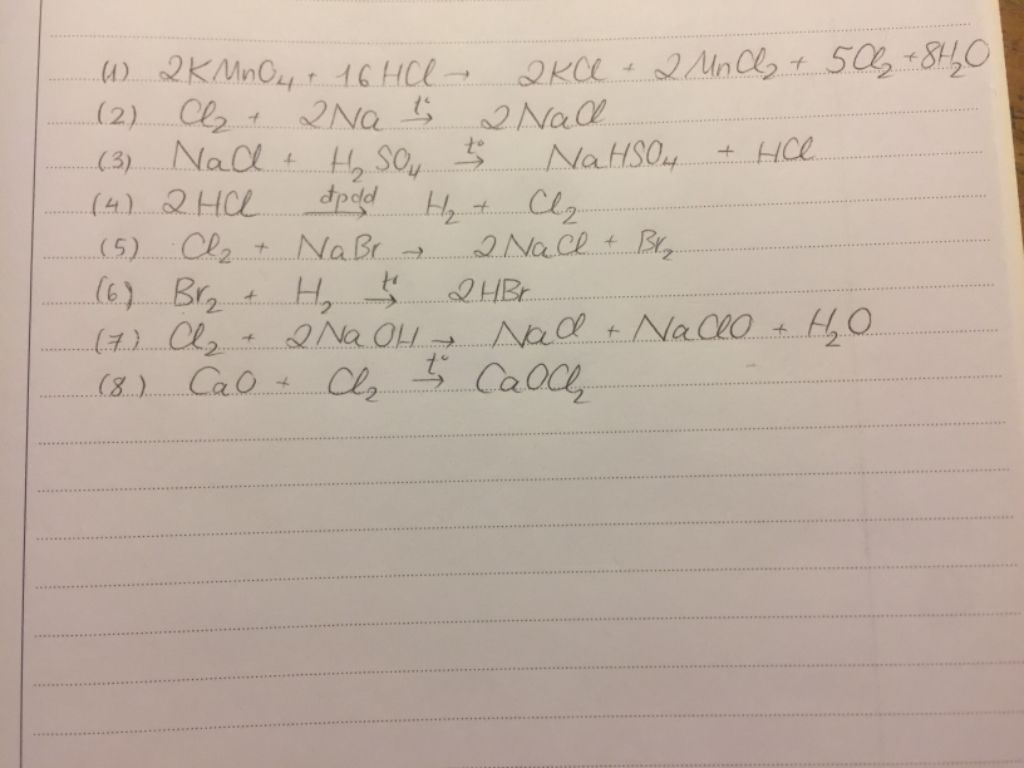 (1) 2KMnO₄ + 16HCl → 2KCl + 2MnCl₂ + 5Cl₂ + 8H₂O
(2) Cl₂ + 2Na t°→ 2NaCl
(3) NaCl + H₂SO₄ t°→ NaHSO₄ + HCl
(4) 2HCl đpdd→ H₂ + Cl₂
(5) Cl₂ + NaBr → 2NaCl + Br₂
(6) Br₂ + H₂ t°→ 2HBr
(7) Cl₂ + 2NaOH → NaCl + NaClO + H₂O
(8) CaO + Cl₂ t°→ CaOCl₂